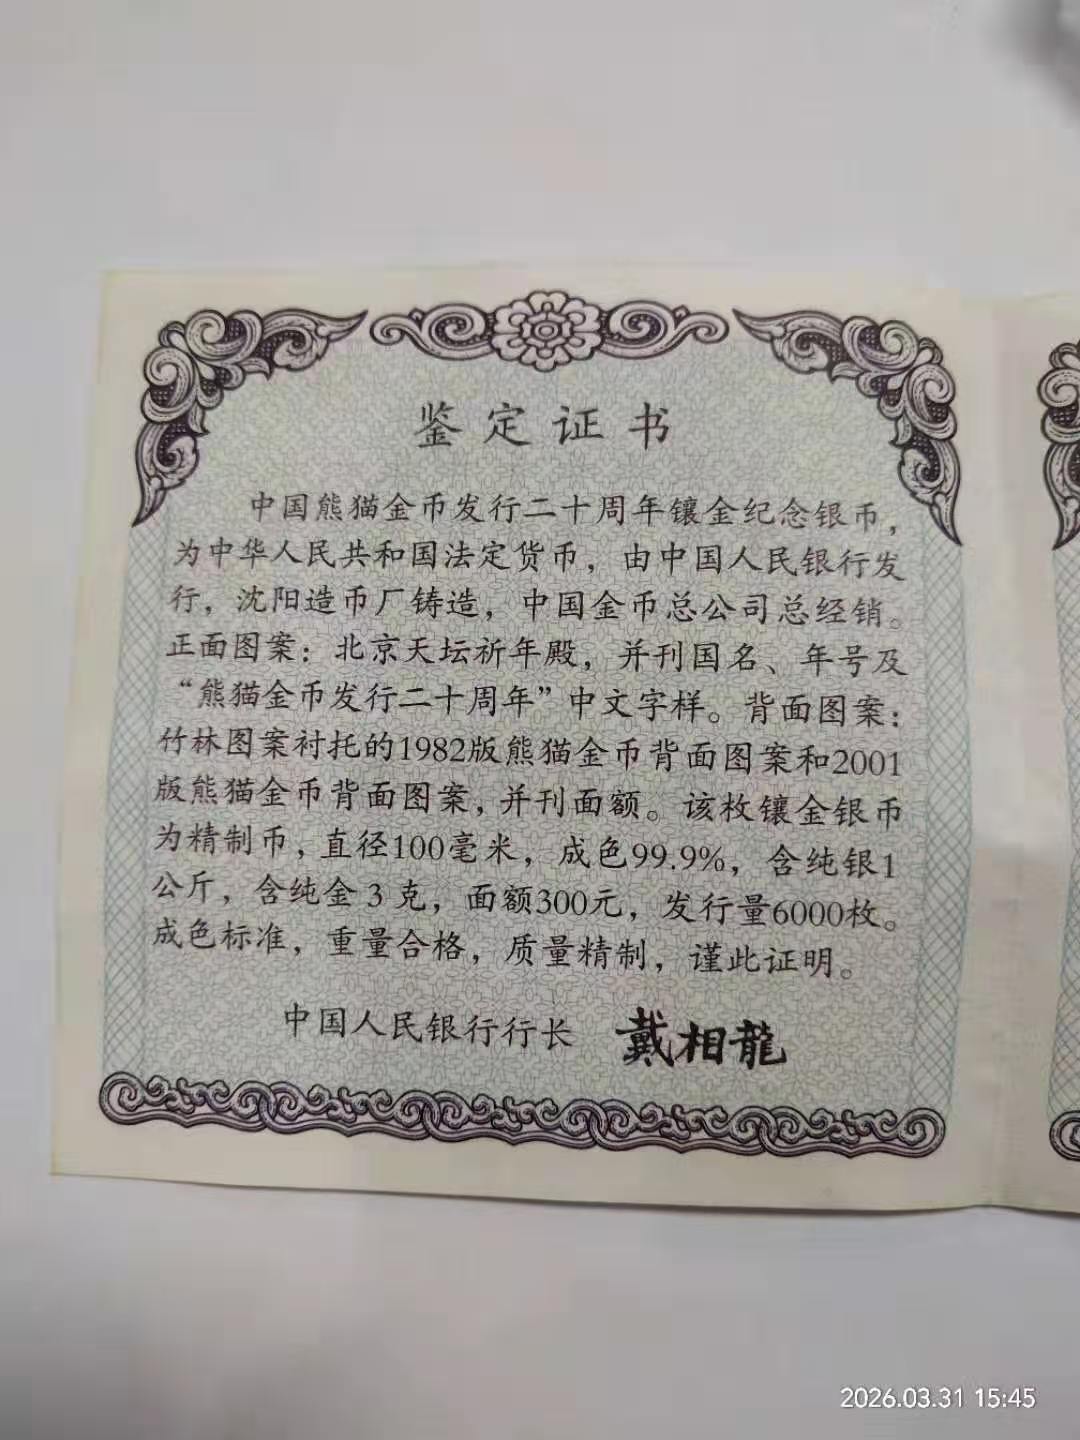 鉴定证书
中国熊猫金币发行二十周年镶金纪念银币，
为中华人民共和国法定货币，由中国人民银行发
行，沈阳造币厂铸造，中国金币总公司总经销。
正面图案：北京天坛祈年殿，并刊国名、年号及
“熊猫金币发行二十周年”中文字样。背面图案：
竹林图案衬托的1982版熊猫金币背面图案和2001
版熊猫金币背面图案，并刊面额。该枚镶金银币
为精制币，直径100毫米，成色99.9%，含纯银1
公斤，含纯金3克，面额300元，发行量6000枚。
成色标准，重量合格，质量精制，谨此证明。
中国人民银行行长 戴相龍
2026.03.31 15:45